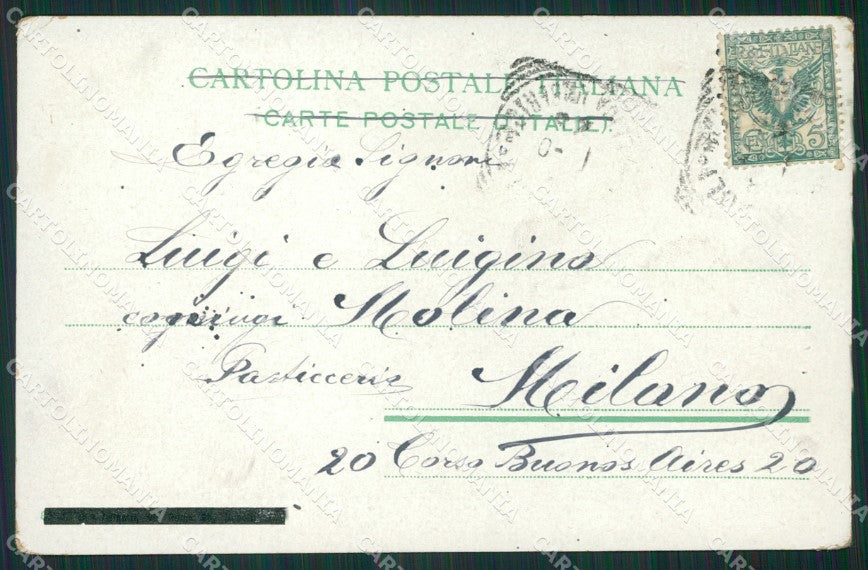 CARTOLINA POSTALE ITALIANA
(CARTE POSTALE D'ITALIE).
POSTE ITALIANE
5
Egregi Signori
Luigi e Luigina
coniugi Molina
Pasticceria Milano
20 Corso Buenos Aires 20
CARTOLINOMANIA